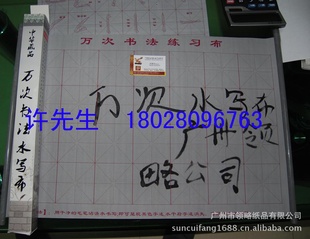 万次书法练习布
中华藏品
万次书法水写布
万次水写布
广州领
略公司
许先生 18028096763
广州市领略纸品有限公司
suncuifang1.1688.com